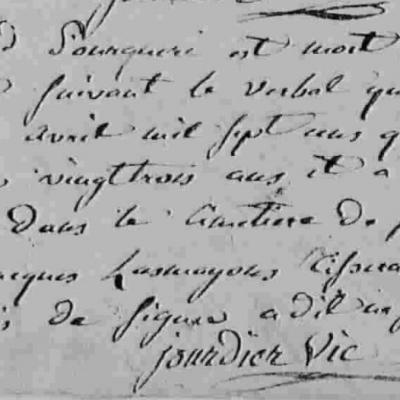 Pourqueri est mort
suivant le verbal qu
avril mil sept cens q
vingttrois ans it a
Dans le Cimetiere De
acques Lasmayous Tissera
de signer a dil
jourdier Vic